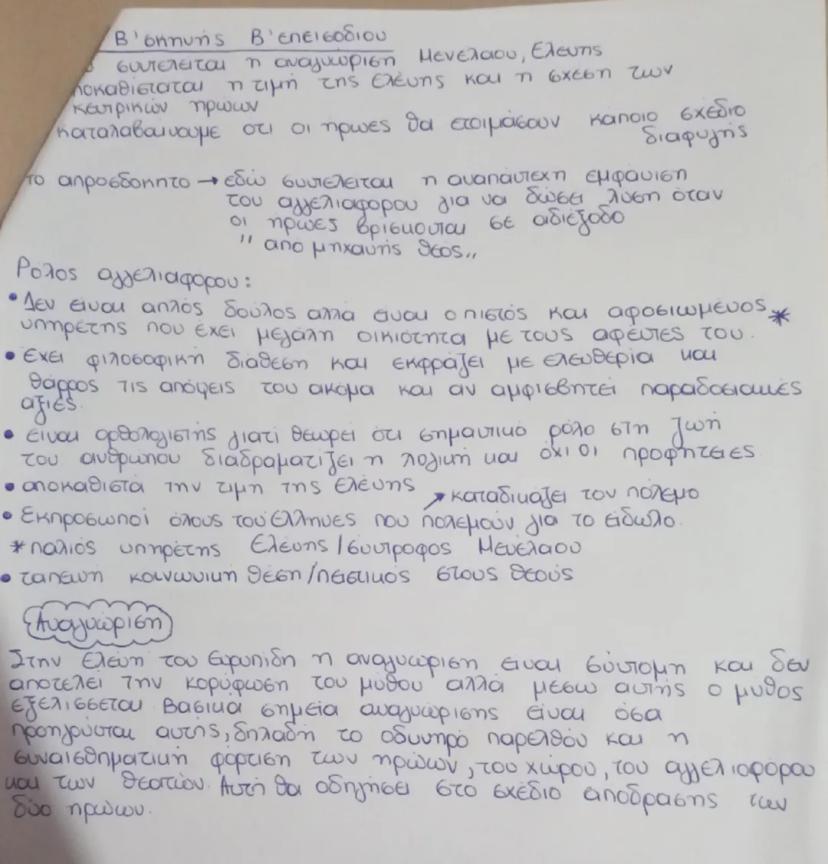 Β' σκηνής Β' επεισοδίου
συντελείται η αναγνώριση Μενελαου, Ελενης
ποκαθίσταται η τιμή της Ελένης και η σχεση των
κεντρικών ηρωων
καταλαβαινουμε οτι οι ηρωες θα ετοιμάσουν κάποιο σχέδιο
διαφυγής
το απροσδοκητο → εδώ συντελειται η αναπάντεχη εμφάνιση
του αγγελιαφορου για να δώσει λύση όταν
οι ηρωες βρισκονται σε αδιέξοδο
" απο μηχανής θεός "
Ρόλος αγγελιαφορου:
• Δεν ειναι απλός δούλος αλλα ειναι ο πιστός και αφοσιωμενος *
υπηρέτης που έχει μεγάλη οικιότητα με τους αφεντες του.
• Εχει φιλοσοφική διάθεση και εκφράζει με ελευθερία και
θάρρος τις απόψεις του ακόμα και αν αμφισβητεί παραδοσιακές
αξιές.
• είναι ορθολογιστής γιατί θεωρεί ότι σημαντικό ρόλο στη ζωή
του ανθρωπου διαδραματιζει η λογική και όχι οι προφητειες
• αποκαθιστά την τιμη της Ελένης
↗ καταδικάζει τον πόλεμο
• Εκπροσωπεί όλους του Ελληνες που πολεμούν για το είδωλο.
* παλιός υπηρέτης Ελενης / συντροφος Μενέλαου
• ταπεινη κοινωνικη θέση / πειστικός στους θεούς
Αναγνώριση
Στην Ελένη του Ευριπίδη η αναγνώριση ειναι σύντομη και δεν
αποτελεί την κορύφωση του μύθου αλλά μέσω αυτής ο μύθος
εξελισσεται Βασικα σημεία αναγνώρισης είναι όσα
προηγούνται αυτής, δηλαδή το οδυνηρό παρελθόν και η
συναισθηματική φόρτιση των ηρώων, του χώρου, του αγγελιοφόρου
και των θεατών. Αυτή θα οδηγήσει στο σχέδιο απόδρασης των
δύο ηρώων.